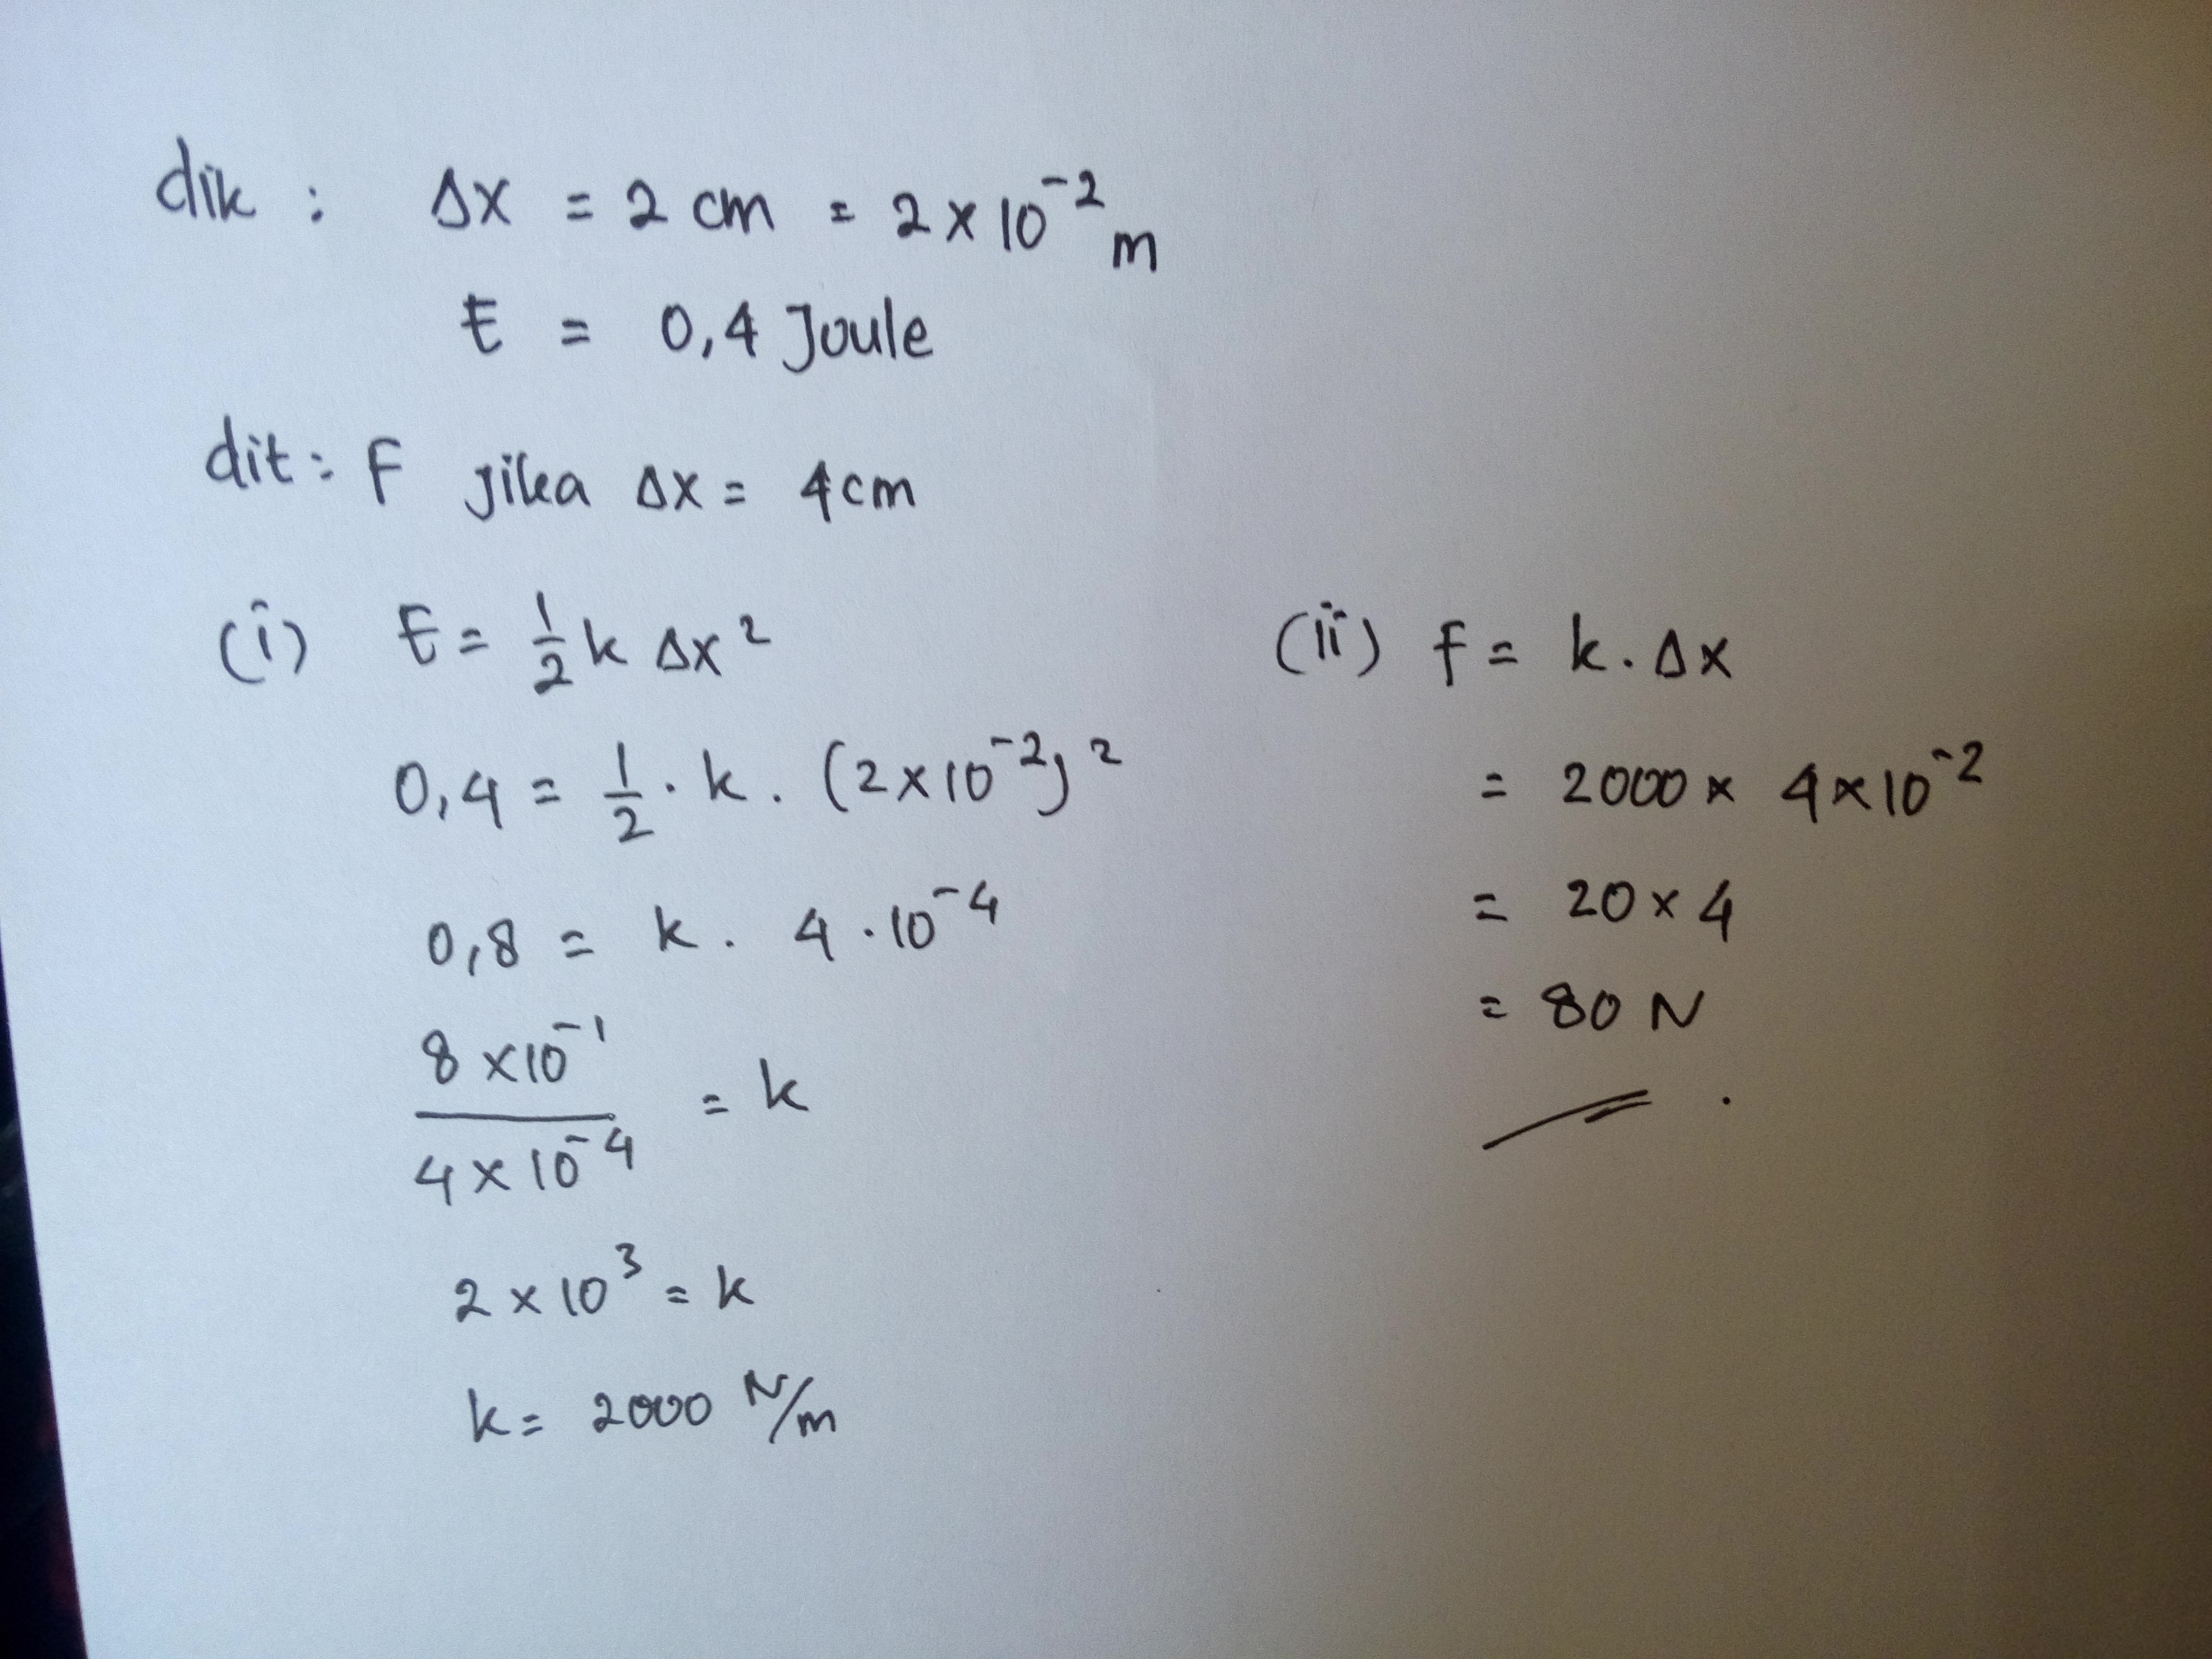 dik : Δx = 2 cm = 2 x 10⁻² m
E = 0,4 Joule
dit : F jika Δx = 4 cm
(i) E = 1/2 k Δx²
0,4 = 1/2 . k . (2 x 10⁻²)²
0,8 = k . 4 . 10⁻⁴
8 x 10⁻¹ / 4 x 10⁻⁴ = k
2 x 10³ = k
k = 2000 N/m
(ii) F = k . Δx
= 2000 x 4 x 10⁻²
= 20 x 4
= 80 N